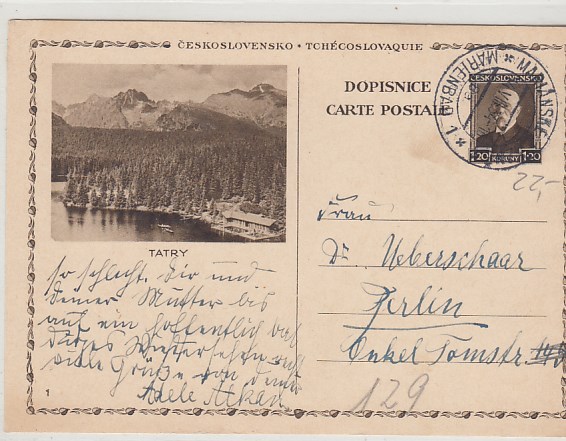 ČESKOSLOVENSKO • TCHÉCOSLOVAQUIE
DOPISNICE
CARTE POSTALE
ČESKOSLOVENSKO
1·20 KORUNY 1·20
MARIENBAD 1
22,-
TATRY
so schlecht. Dir und
deiner Mutter bis
auf ein hoffentlich
Wiedersehen
viele Grüße von deiner
Adele
Frau
Dr Ueberschaar
Berlin
Onkel Tomstr.
129
1